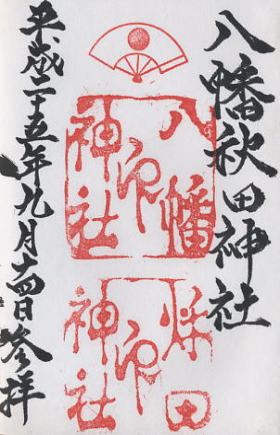 八幡秋田神社
八幡
神社
印
秋田
神社
印
平成二十五年九月十四日参拝